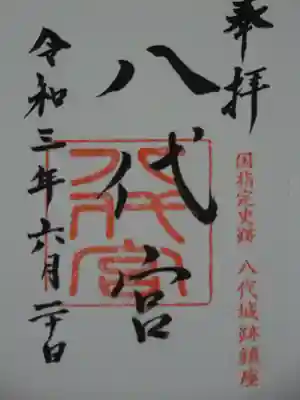 奉拝
国指定史跡 八代城跡鎮座
八代宮
八代宮
令和三年六月二十日